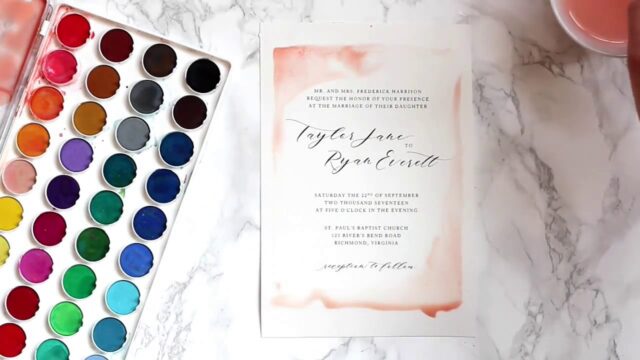 MR. AND MRS. FREDERICK HARRISON
REQUEST THE HONOR OF YOUR PRESENCE
AT THE MARRIAGE OF THEIR DAUGHTER
Tayler Jane
TO
Ryan Everett
SATURDAY THE 22ND OF SEPTEMBER
TWO THOUSAND SEVENTEEN
AT FIVE O'CLOCK IN THE EVENING
ST. PAUL'S BAPTIST CHURCH
121 RIVER'S BEND ROAD
RICHMOND, VIRGINIA
reception to follow